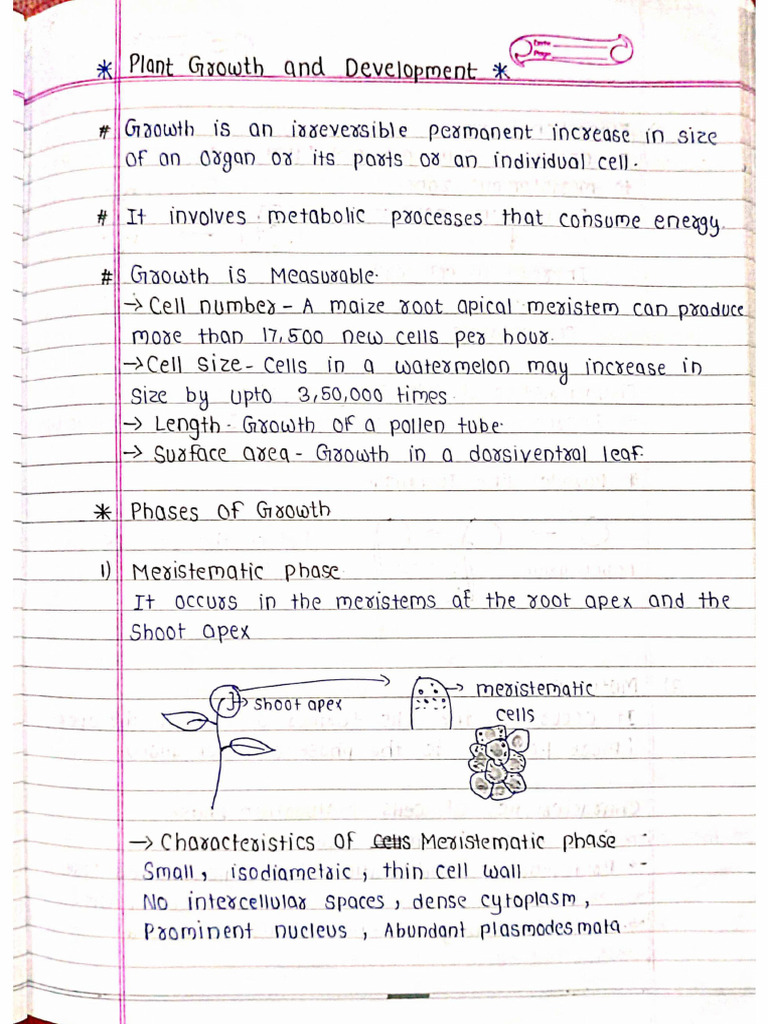 * Plant Growth and Development *
# Growth is an irreversible permanent increase in size
of an organ or its parts or an individual cell.
# It involves metabolic processes that consume energy.
# Growth is Measurable.
→ Cell number - A maize root apical meristem can produce
more than 17,500 new cells per hour.
→ Cell size - Cells in a watermelon may increase in
size by upto 3,50,000 times
→ Length - Growth of a pollen tube.
→ Surface area - Growth in a dorsiventral leaf.
* Phases of Growth
1) Meristematic phase
It occurs in the meristems at the root apex and the
Shoot apex
→ Shoot apex
→ meristematic
cells
→ Characteristics of cells Meristematic phase
Small, isodiametric, thin cell wall
No intercellular spaces, dense cytoplasm,
Prominent nucleus, Abundant plasmodesmata.